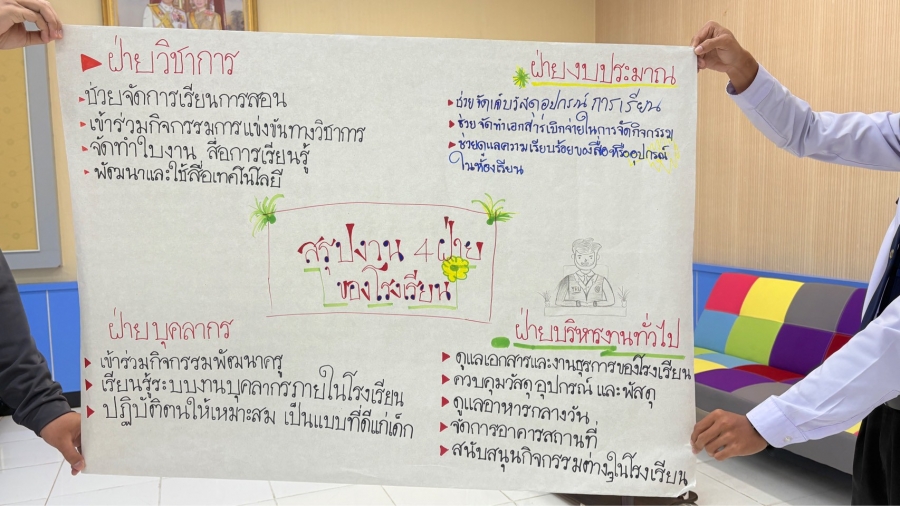 ฝ่ายวิชาการ
ช่วยจัดการเรียนการสอน
เข้าร่วมกิจกรรมการแข่งขันทางวิชาการ
จัดทำใบงาน สื่อการเรียนรู้
พัฒนาและใช้สื่อเทคโนโลยี
ฝ่ายงบประมาณ
ช่วยจัดเก็บวัสดุอุปกรณ์การเรียน
ช่วยจัดทำเอกสารเบิกจ่ายในการจัดกิจกรรม
ช่วยดูแลความเรียบร้อยของสื่อหรืออุปกรณ์
ในห้องเรียน
สรุปงาน 4 ฝ่าย
ของโรงเรียน
ฝ่ายบุคลากร
เข้าร่วมกิจกรรมพัฒนาครู
เรียนรู้ระบบงานบุคลากรภายในโรงเรียน
ปฏิบัติตนให้เหมาะสม เป็นแบบที่ดีแก่เด็ก
ฝ่ายบริหารงานทั่วไป
ดูแลเอกสารและงานธุรการของโรงเรียน
ควบคุมวัสดุ อุปกรณ์ และพัสดุ
ดูแลอาหารกลางวัน
จัดการอาคารสถานที่
สนับสนุนกิจกรรมต่างๆในโรงเรียน